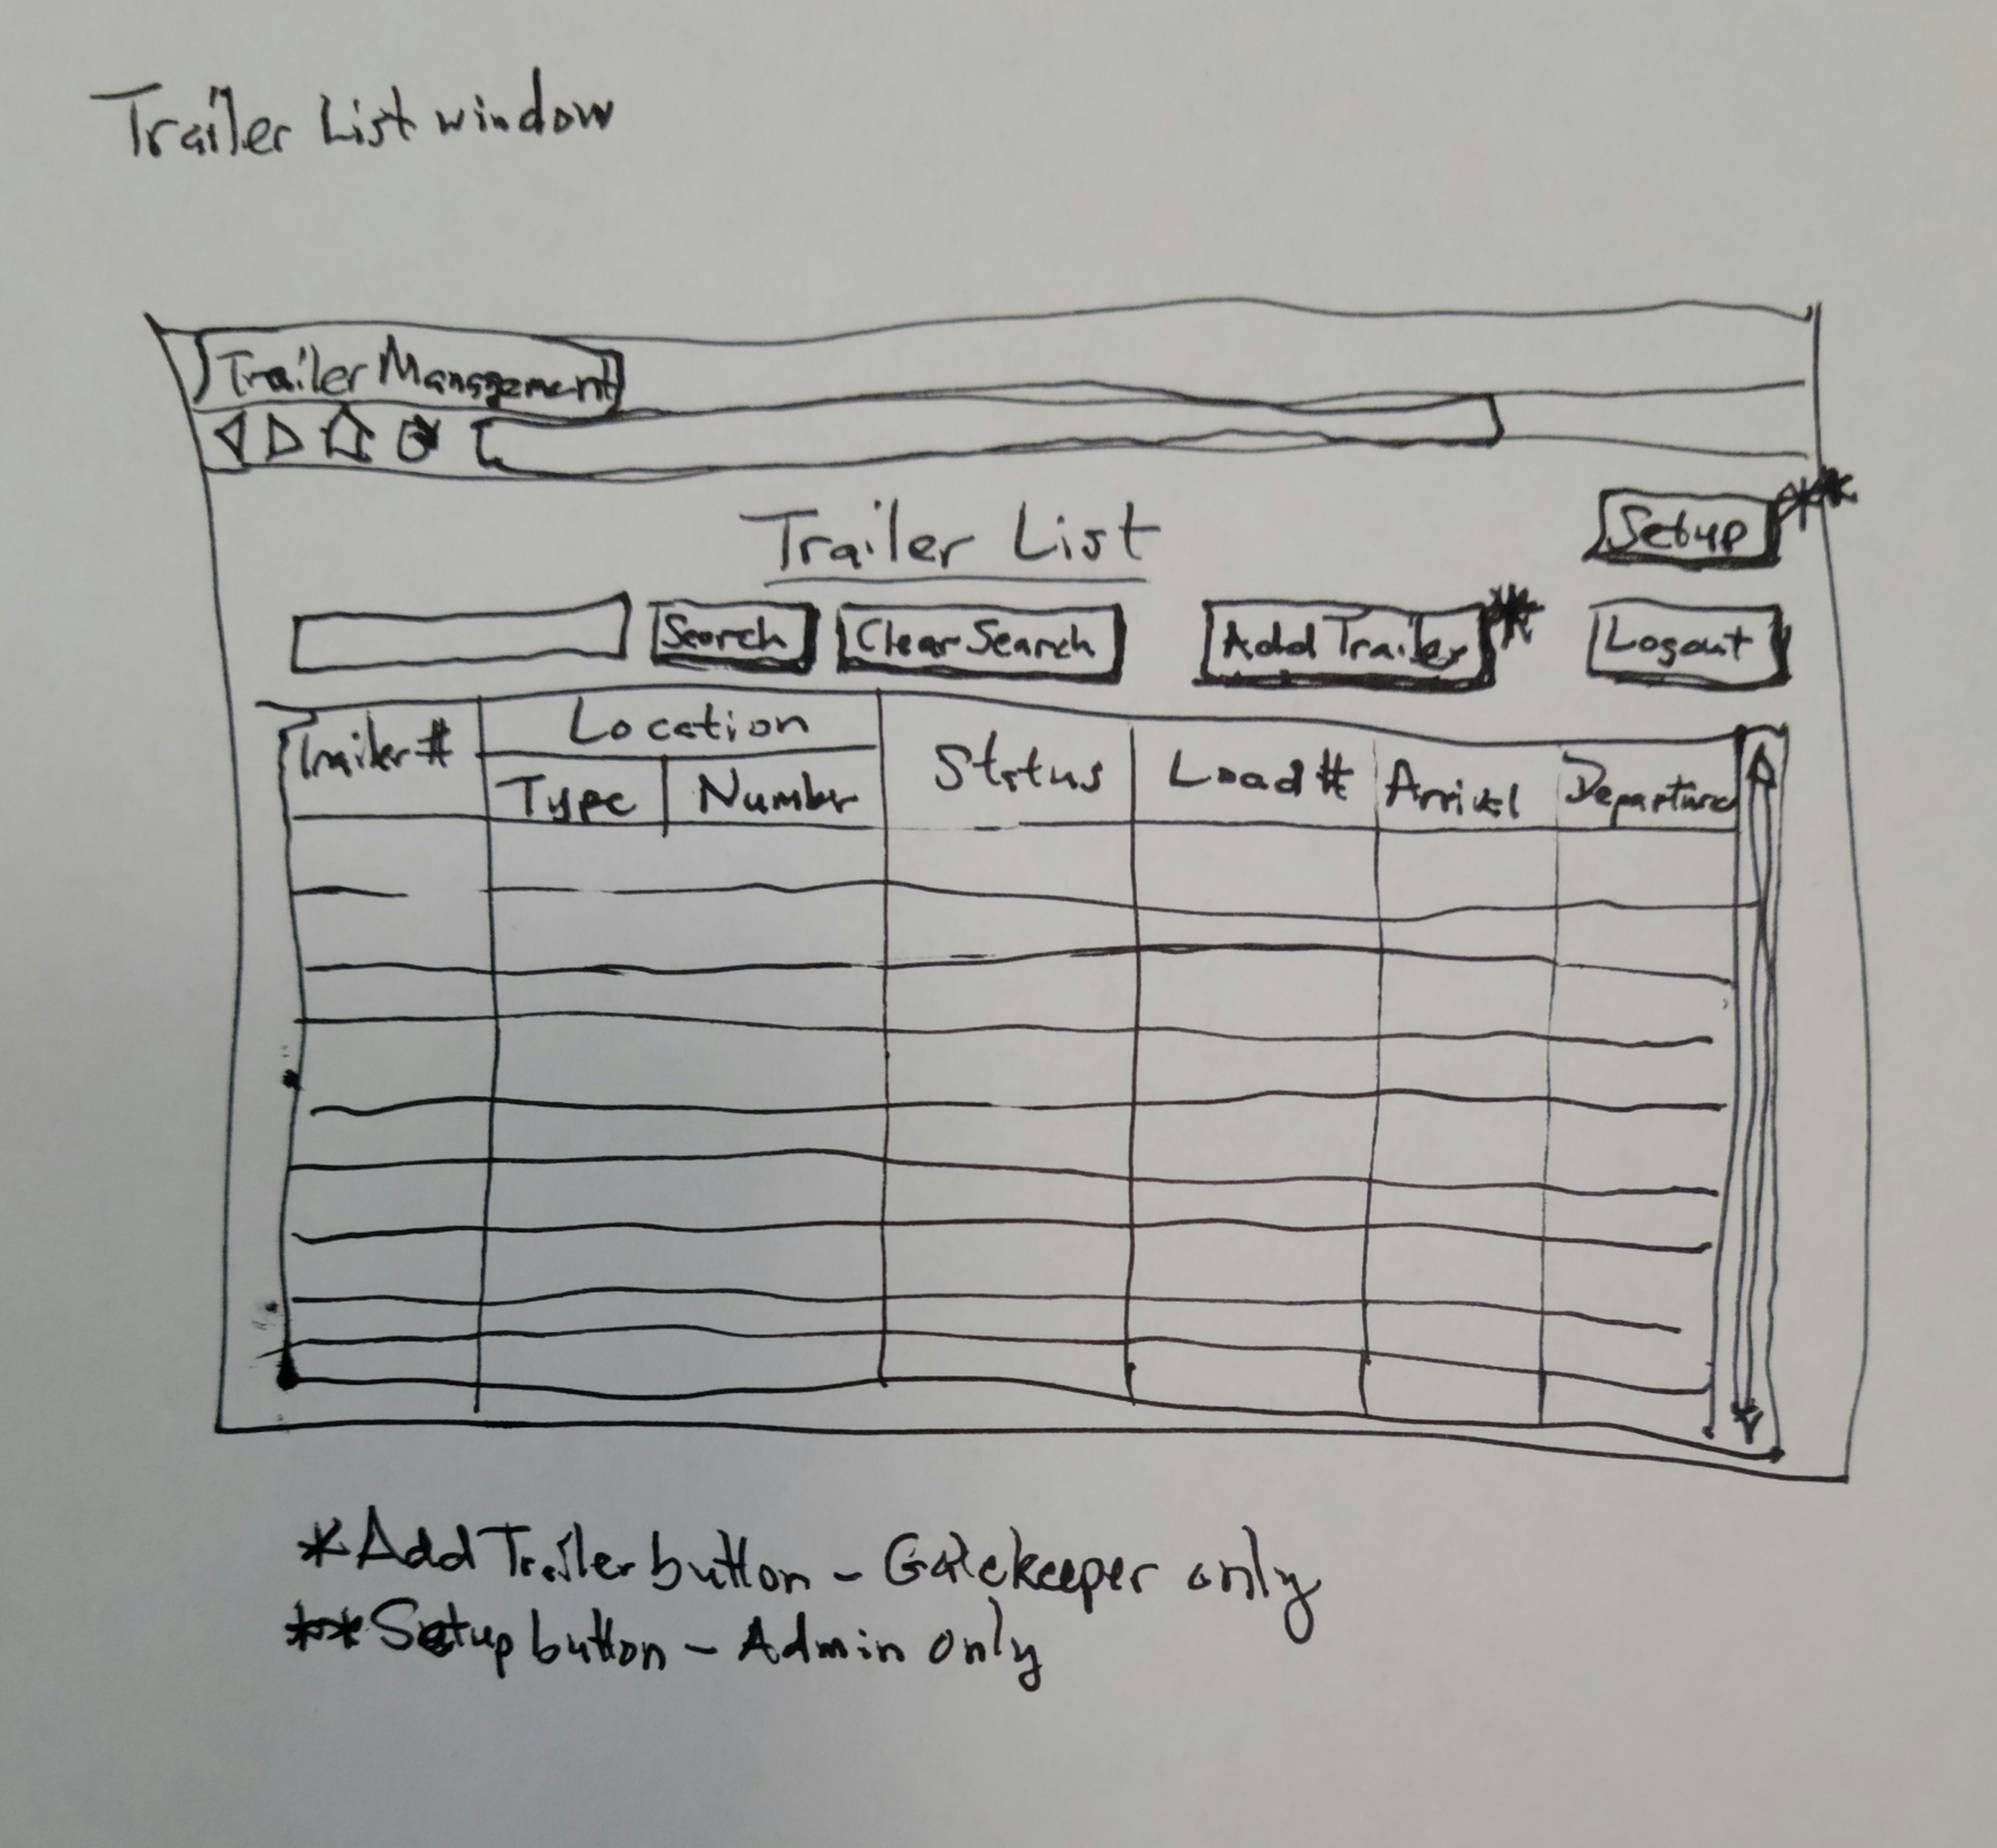 Trailer List window
Trailer Management
Trailer List
Setup **
Search
Clear Search
Add Trailer *
Logout
Trailer #
Location
Type
Number
Status
Load #
Arrival
Departure
* Add Trailer button - Gatekeeper only
** Setup button - Admin only